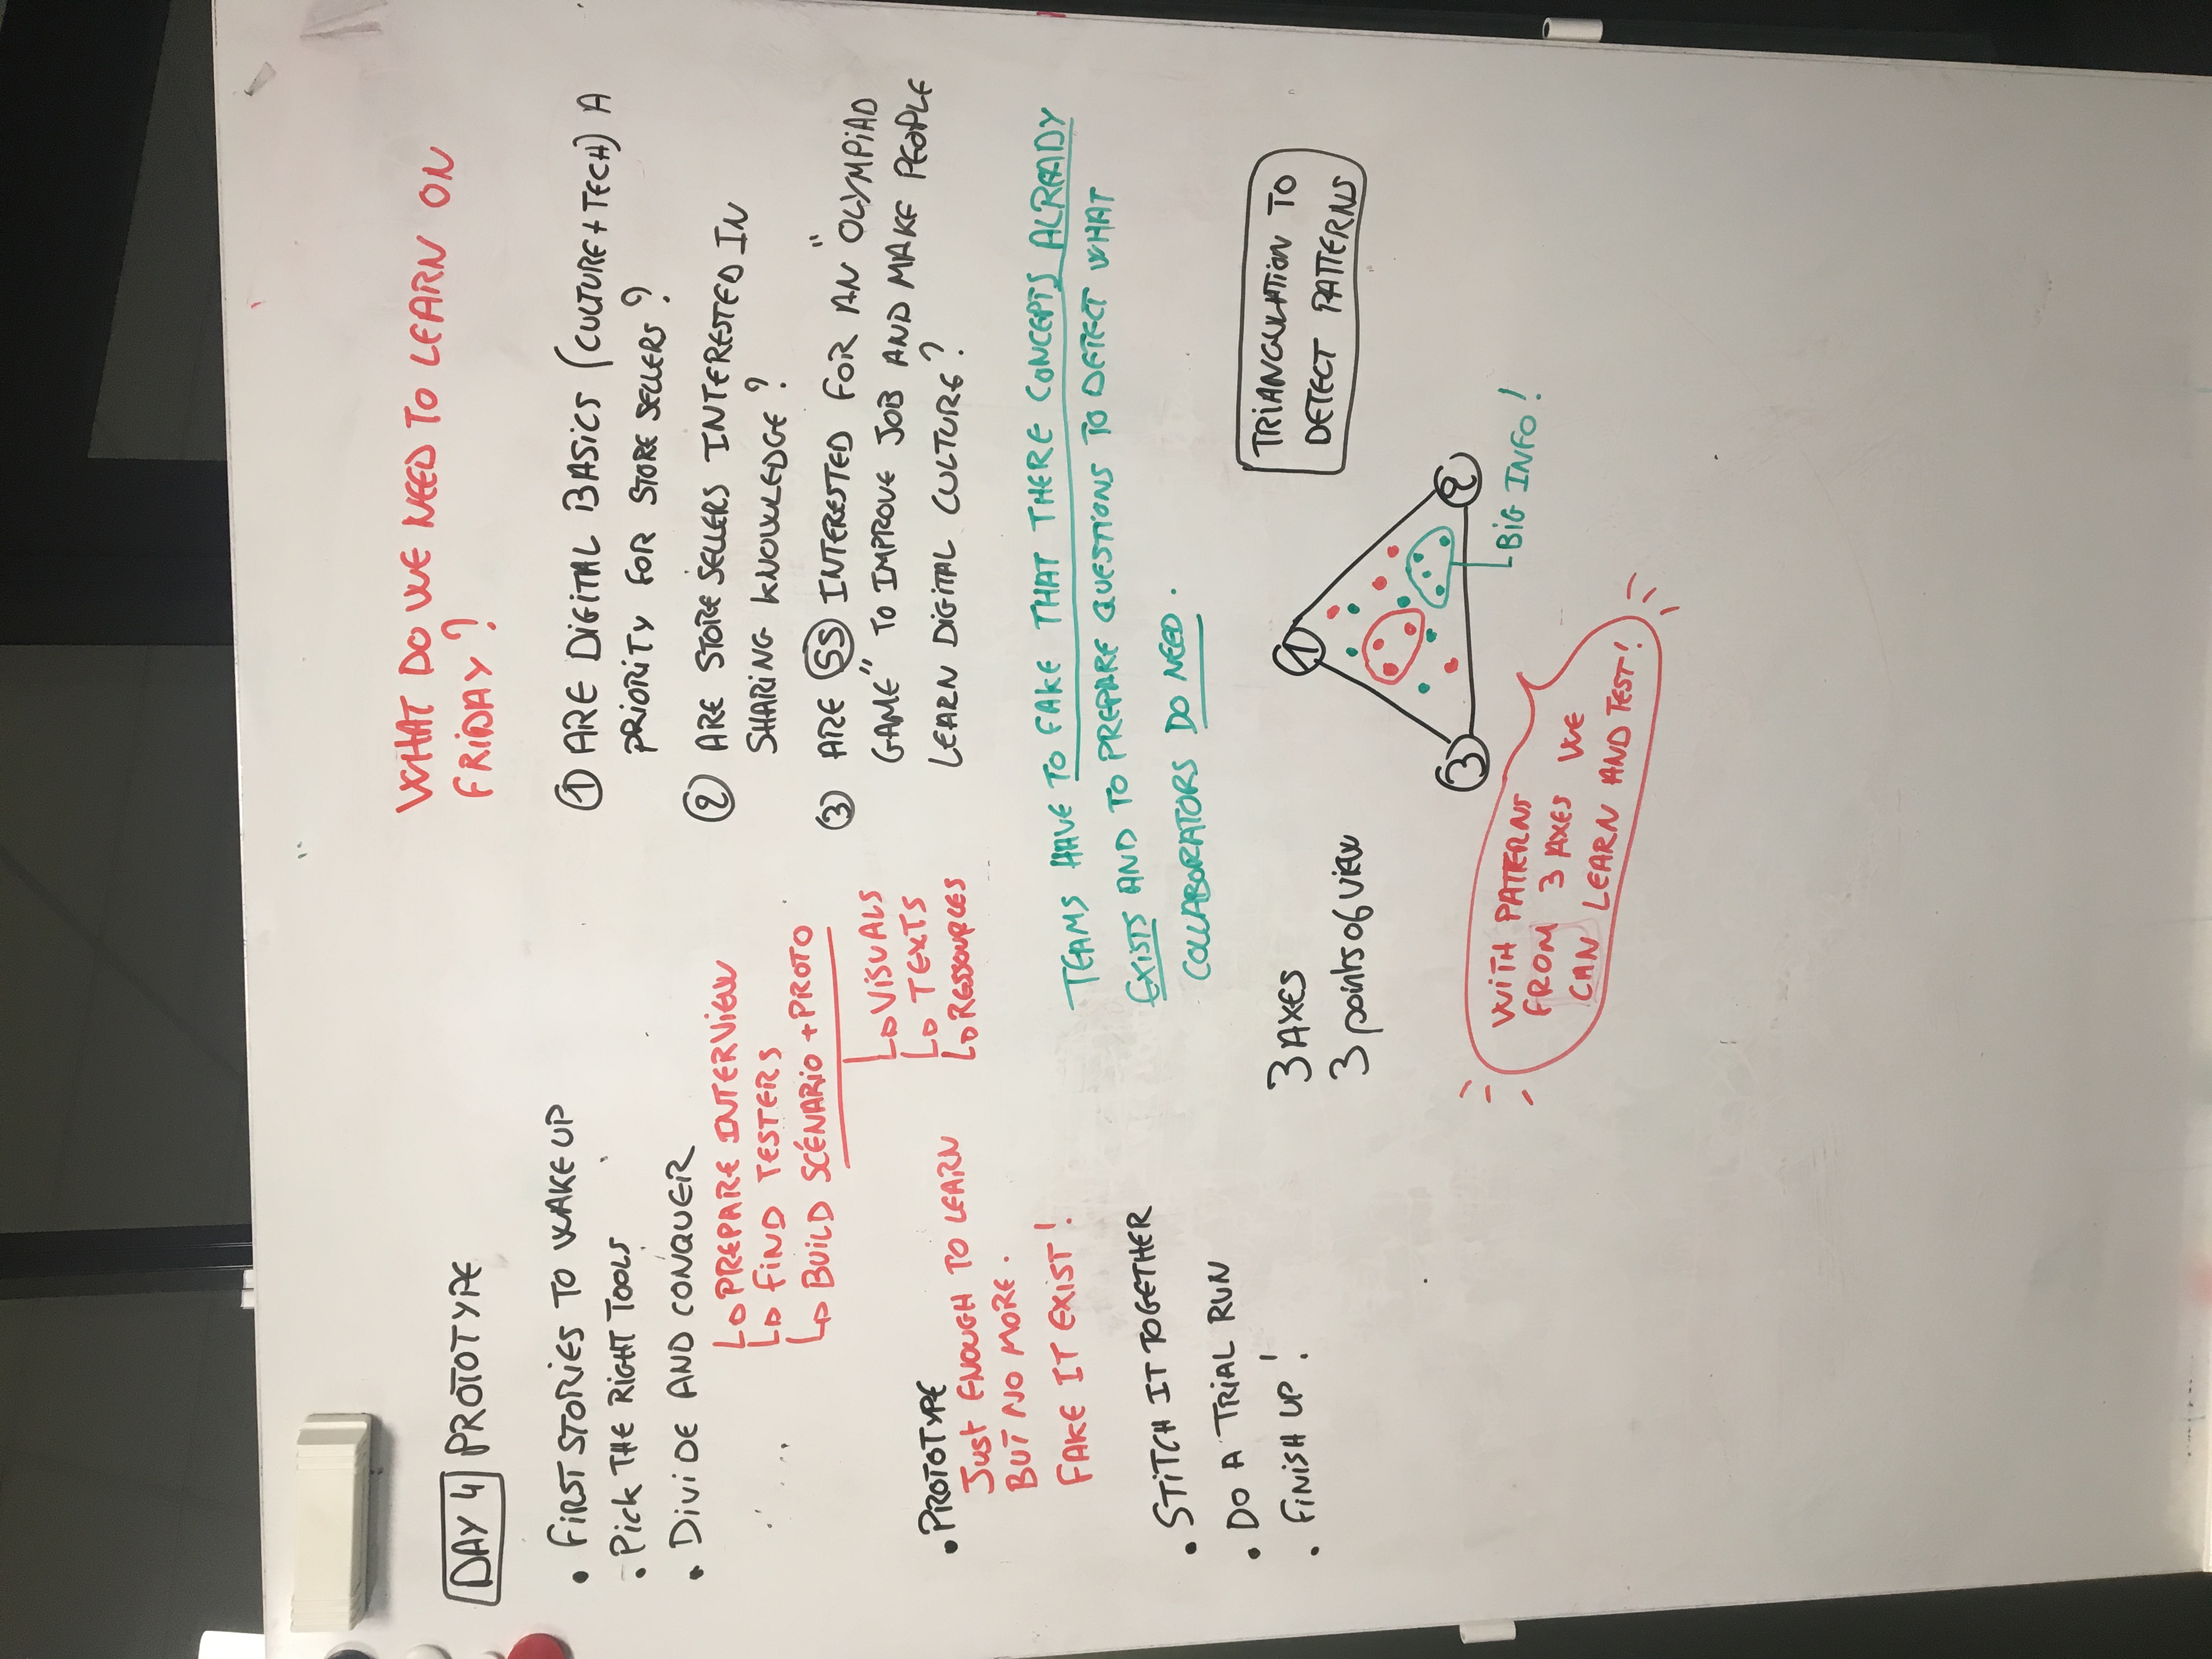 DAY 4 PROTOTYPE
• FIRST STORIES TO WAKE UP
• PICK THE RIGHT TOOLS
• DIVIDE AND CONQUER
↳ PREPARE INTERVIEW
↳ FIND TESTERS
↳ BUILD SCÉNARIO + PROTO
↳ VISUALS
↳ TEXTS
↳ RESSOURCES
• PROTOTYPE
JUST ENOUGH TO LEARN
BUT NO MORE.
FAKE IT EXIST!
• STITCH IT TOGETHER
• DO A TRIAL RUN
• FINISH UP!
WHAT DO WE NEED TO LEARN ON
FRIDAY?
① ARE DIGITAL BASICS (CULTURE + TECH) A
PRIORITY FOR STORE SELLERS?
② ARE STORE SELLERS INTERESTED IN
SHARING KNOWLEDGE?
③ ARE SS INTERESTED FOR AN "OLYMPIAD
GAME" TO IMPROVE JOB AND MAKE PEOPLE
LEARN DIGITAL CULTURE?
TEAMS HAVE TO FAKE THAT THERE CONCEPTS ALREADY
EXISTS AND TO PREPARE QUESTIONS TO DETECT WHAT
COLLABORATORS DO NEED.
3 AXES
3 points of view
①
③
②
TRIANGULATION TO
DETECT PATTERNS
BIG INFO!
WITH PATTERNS
FROM 3 AXES WE
CAN LEARN AND TEST!